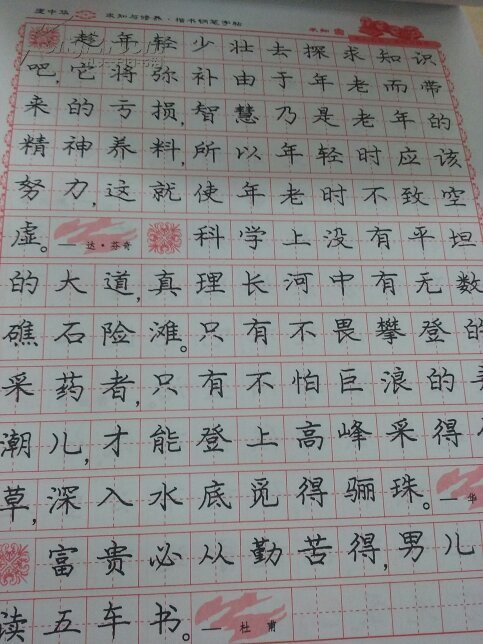 庞中华 求知与修养·楷书钢笔字帖 求知
趁年轻少壮去探求知识
吧,它将弥补由于年老而带
来的亏损,智慧乃是老年的
精神养料,所以年轻时应该
努力,这就使年老时不致空
虚。—达·芬奇 科学上没有平坦
的大道,真理长河中有无数
礁石险滩。只有不畏攀登的
采药者,只有不怕巨浪的
潮儿,才能登上高峰采得
草,深入水底觅得骊珠。—华
富贵必从勤苦得,男儿
读五车书。—杜甫